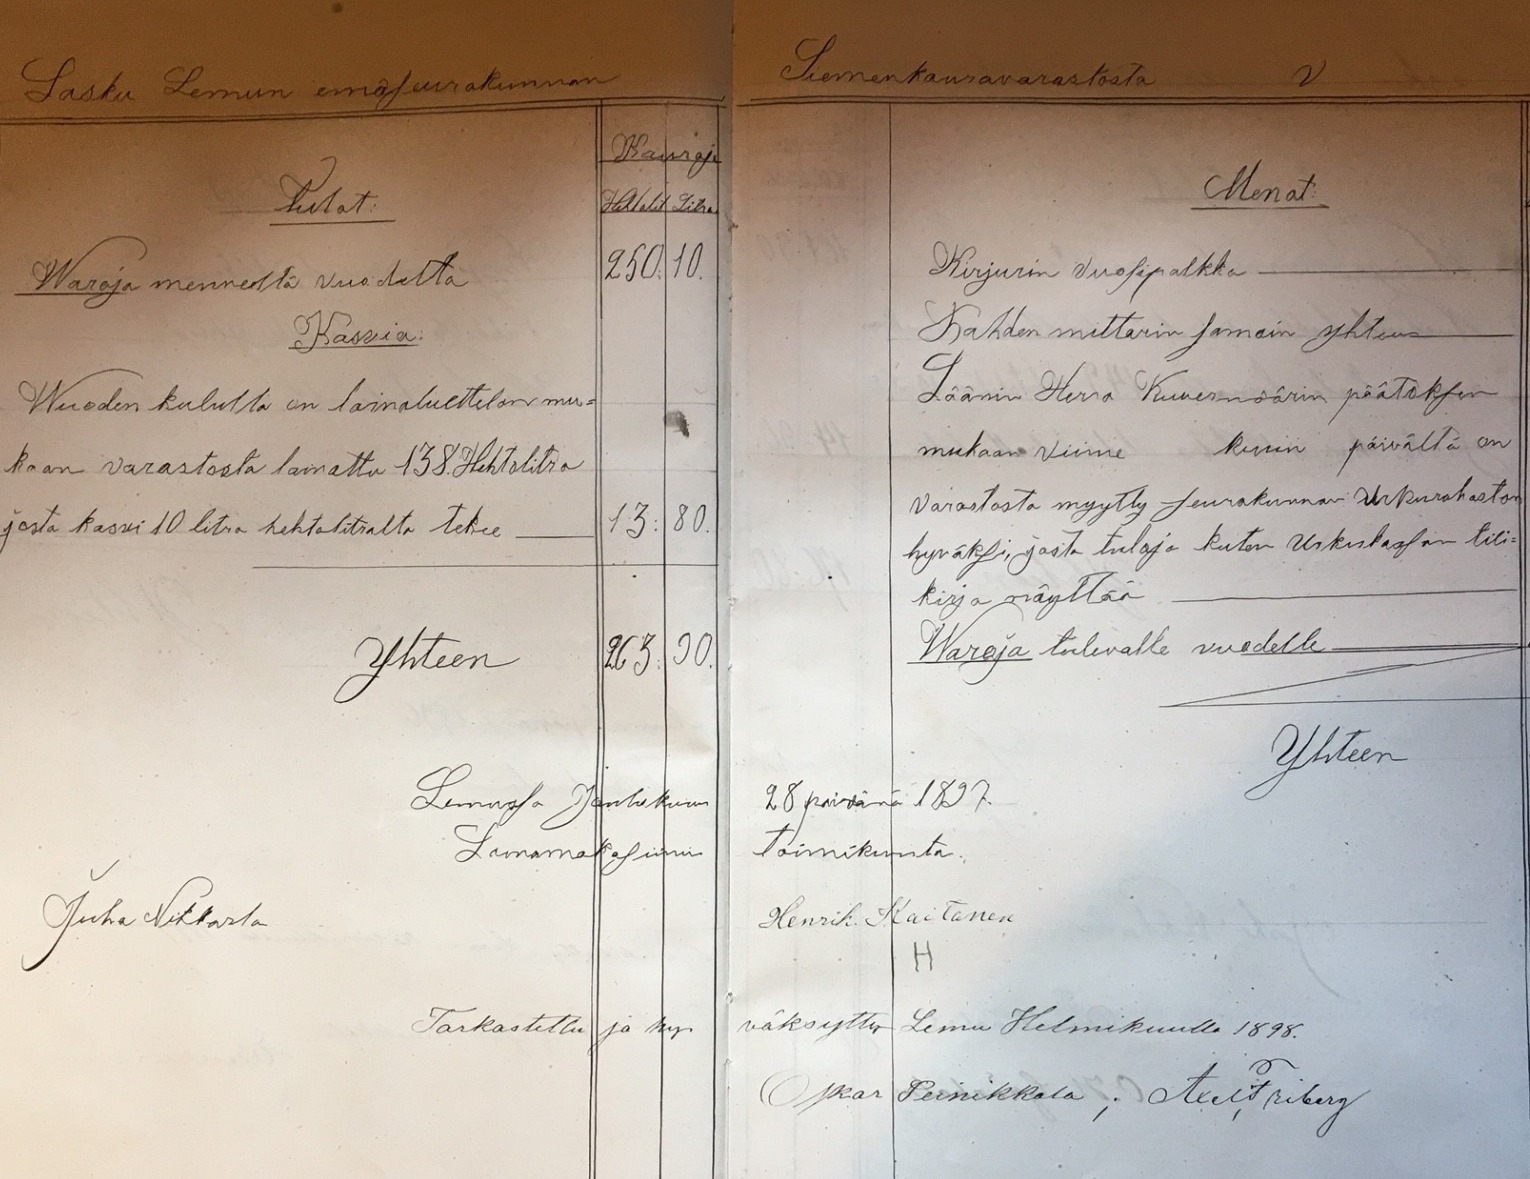 Lasku Lemun emäseurakunnan Siemenkauravarastosta V
Kauroja
Tulot:
Hehtolit Litra
Waroja menneeltä vuodelta 250. 10.
Kasvia:
Wuoden kulutta on lainaluettelon mu=
kaan varastosta lainattu 138 Hehtolitra
josta kasvi 10 litra hehtolitralta tekee 13: 80.
Yhteen 263. 90.
Menot:
Kirjurin vuosipalkka
Kahden mittarin samoin yhteen
Läänin Herra Kuvernöörin päätöksen
mukaan viime kuun päivältä on
varastosta myytty seurakunnan Urkurahaston
hyväksi, josta tuloja kuten Urkukassan tili=
kirja näyttää
Waroja tulevalle vuodelle
Yhteen
Lemussa Joulukuun 28 päivänä 1897.
Lainamakasiinin toimikunta.
Juha Nikkarla Henrik Kaitanen
H
Tarkastettu ja hyväksytty Lemu Helmikuulla 1898.
Oskar Peinikkala ; Axel Friberg